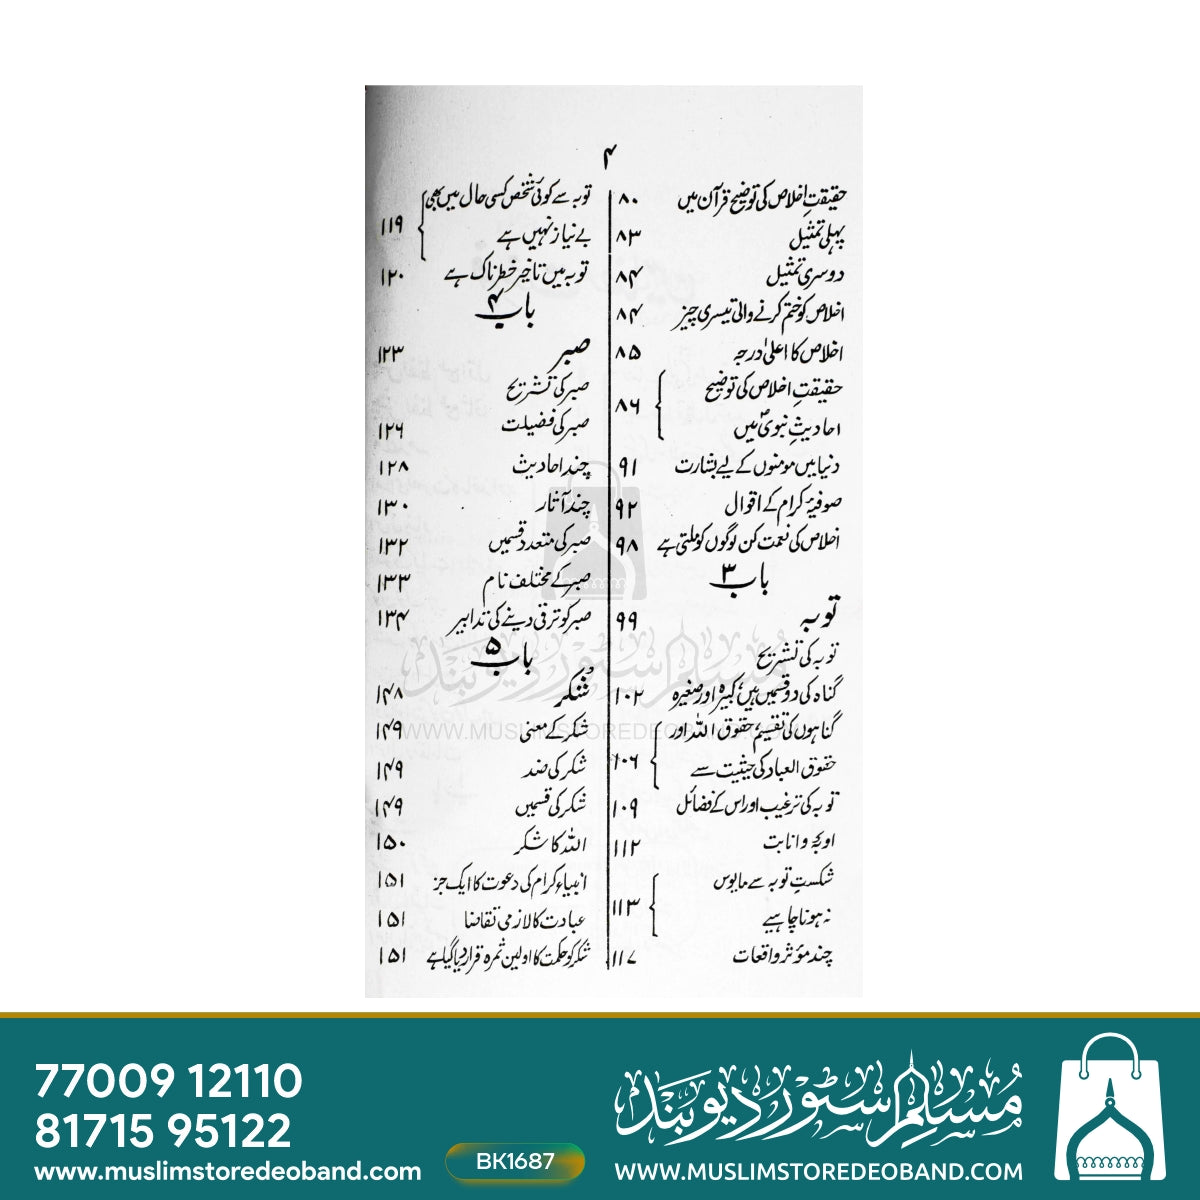 ۴
حقیقتِ اخلاص کی توضیح قرآن میں ۸۰
پہلی تمثیل ۸۳
دوسری تمثیل ۸۴
اخلاص کو ختم کرنے والی تیسری چیز ۸۴
اخلاص کا اعلیٰ درجہ ۸۵
حقیقتِ اخلاص کی توضیح
احادیثِ نبویؐ میں ۸۶
دنیا میں مومنوں کے لیے بشارت ۹۱
صوفیۂ کرام کے اقوال ۹۲
اخلاص کی نعمت کن لوگوں کو ملتی ہے ۹۸
باب ۳
توبہ ۹۹
توبہ کی تشریح
گناہ کی دو قسمیں ہیں، کبیرہ اور صغیرہ ۱۰۲
گناہوں کی تقسیم، حقوق اللہ اور
حقوق العباد کی حیثیت سے ۱۰۶
توبہ کی ترغیب اور اس کے فضائل ۱۰۹
اوبہ و انابت ۱۱۲
شکستِ توبہ سے مایوس
نہ ہونا چاہیے ۱۱۳
چند مؤثر واقعات ۱۱۷
توبہ سے کوئی شخص کسی حال میں بھی
بے نیاز نہیں ہے ۱۱۹
توبہ میں تاخیر خطرناک ہے ۱۲۰
باب ۴
صبر ۱۲۳
صبر کی تشریح
صبر کی فضیلت ۱۲۶
چند احادیث ۱۲۸
چند آثار ۱۳۰
صبر کی متعدد قسمیں ۱۳۲
صبر کے مختلف نام ۱۳۳
صبر کو ترقی دینے کی تدابیر ۱۳۴
باب ۵
شکر ۱۴۸
شکر کے معنی ۱۴۹
شکر کی ضد ۱۴۹
شکر کی قسمیں ۱۴۹
اللہ کا شکر ۱۵۰
انبیاء کرام کی دعوت کا ایک جز ۱۵۱
عبادت کا لازمی تقاضا ۱۵۱
شکر کو حکمت کا اولین ثمرہ قرار دیا گیا ہے ۱۵۱
مُسلم سٹور دیوبند
WWW.MUSLIMSTOREDEOBAND.COM
77009 12110
81715 95122
www.muslimstoredeoband.com
BK1687
مُسلم سٹور دیوبند
WWW.MUSLIMSTOREDEOBAND.COM